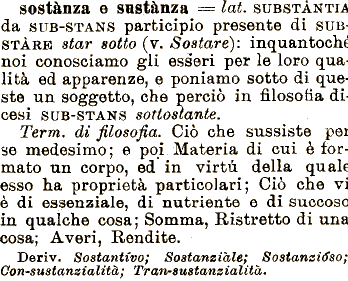 sostànza e sustànza = lat. SUBSTÀNTIA
da SUB-STANS participio presente di SUB-
STÀRE star sotto (v. Sostare): inquantoché
noi conosciamo gli esseri per le loro qua-
lità ed apparenze, e poniamo sotto di que-
ste un soggetto, che perciò in filosofia di-
cesi SUB-STANS sottostante.
Term. di filosofia. Ciò che sussiste per
se medesimo; e poi Materia di cui è for-
mato un corpo, ed in virtú della quale
esso ha proprietà particolari; Ciò che vi
è di essenziale, di nutriente e di succoso
in qualche cosa; Somma, Ristretto di una
cosa; Averi, Rendite.
Deriv. Sostantívo; Sostanziàle; Sostanzióso;
Con-sustanzialità; Tran-sustanzialità.